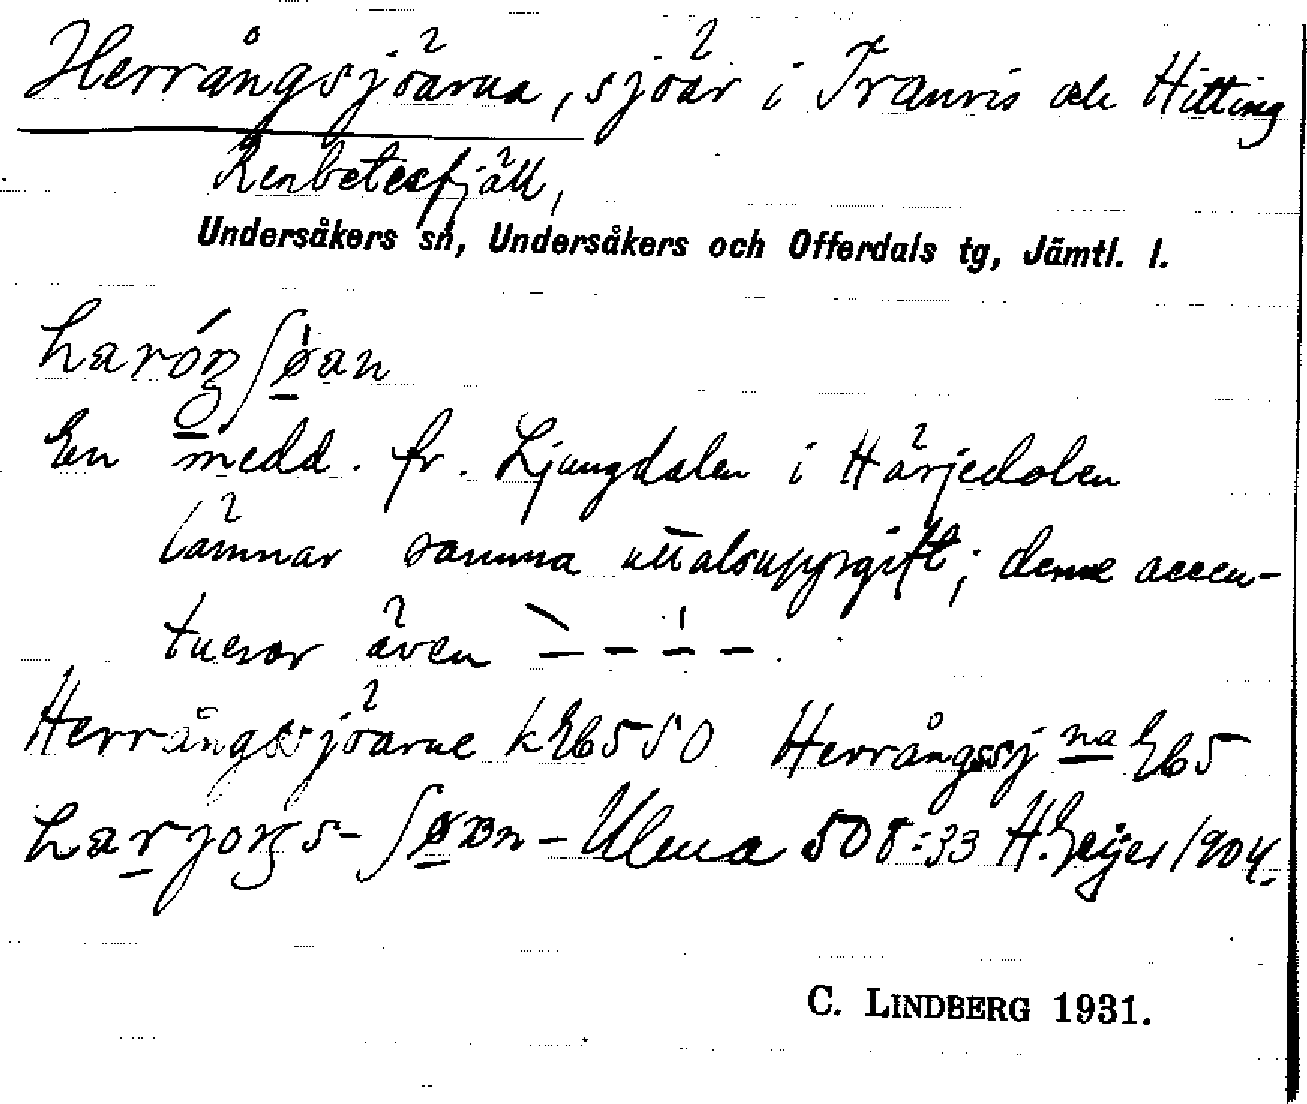 Herrångsjöarna, sjöar i Tranris och Hitting
Renbetesfjäll,
Undersåkers sn, Undersåkers och Offerdals tg, Jämtl. l.
En medd. fr. Ljungdalen i Härjedalen
lämnar samma uttalsuppgift; denne accen-
tuerar även
Herrångssjöarne kEb5 50 Herrångssj na Eb5
Ulma 508:33 H. Geijer 1904.
C. LINDBERG 1931.